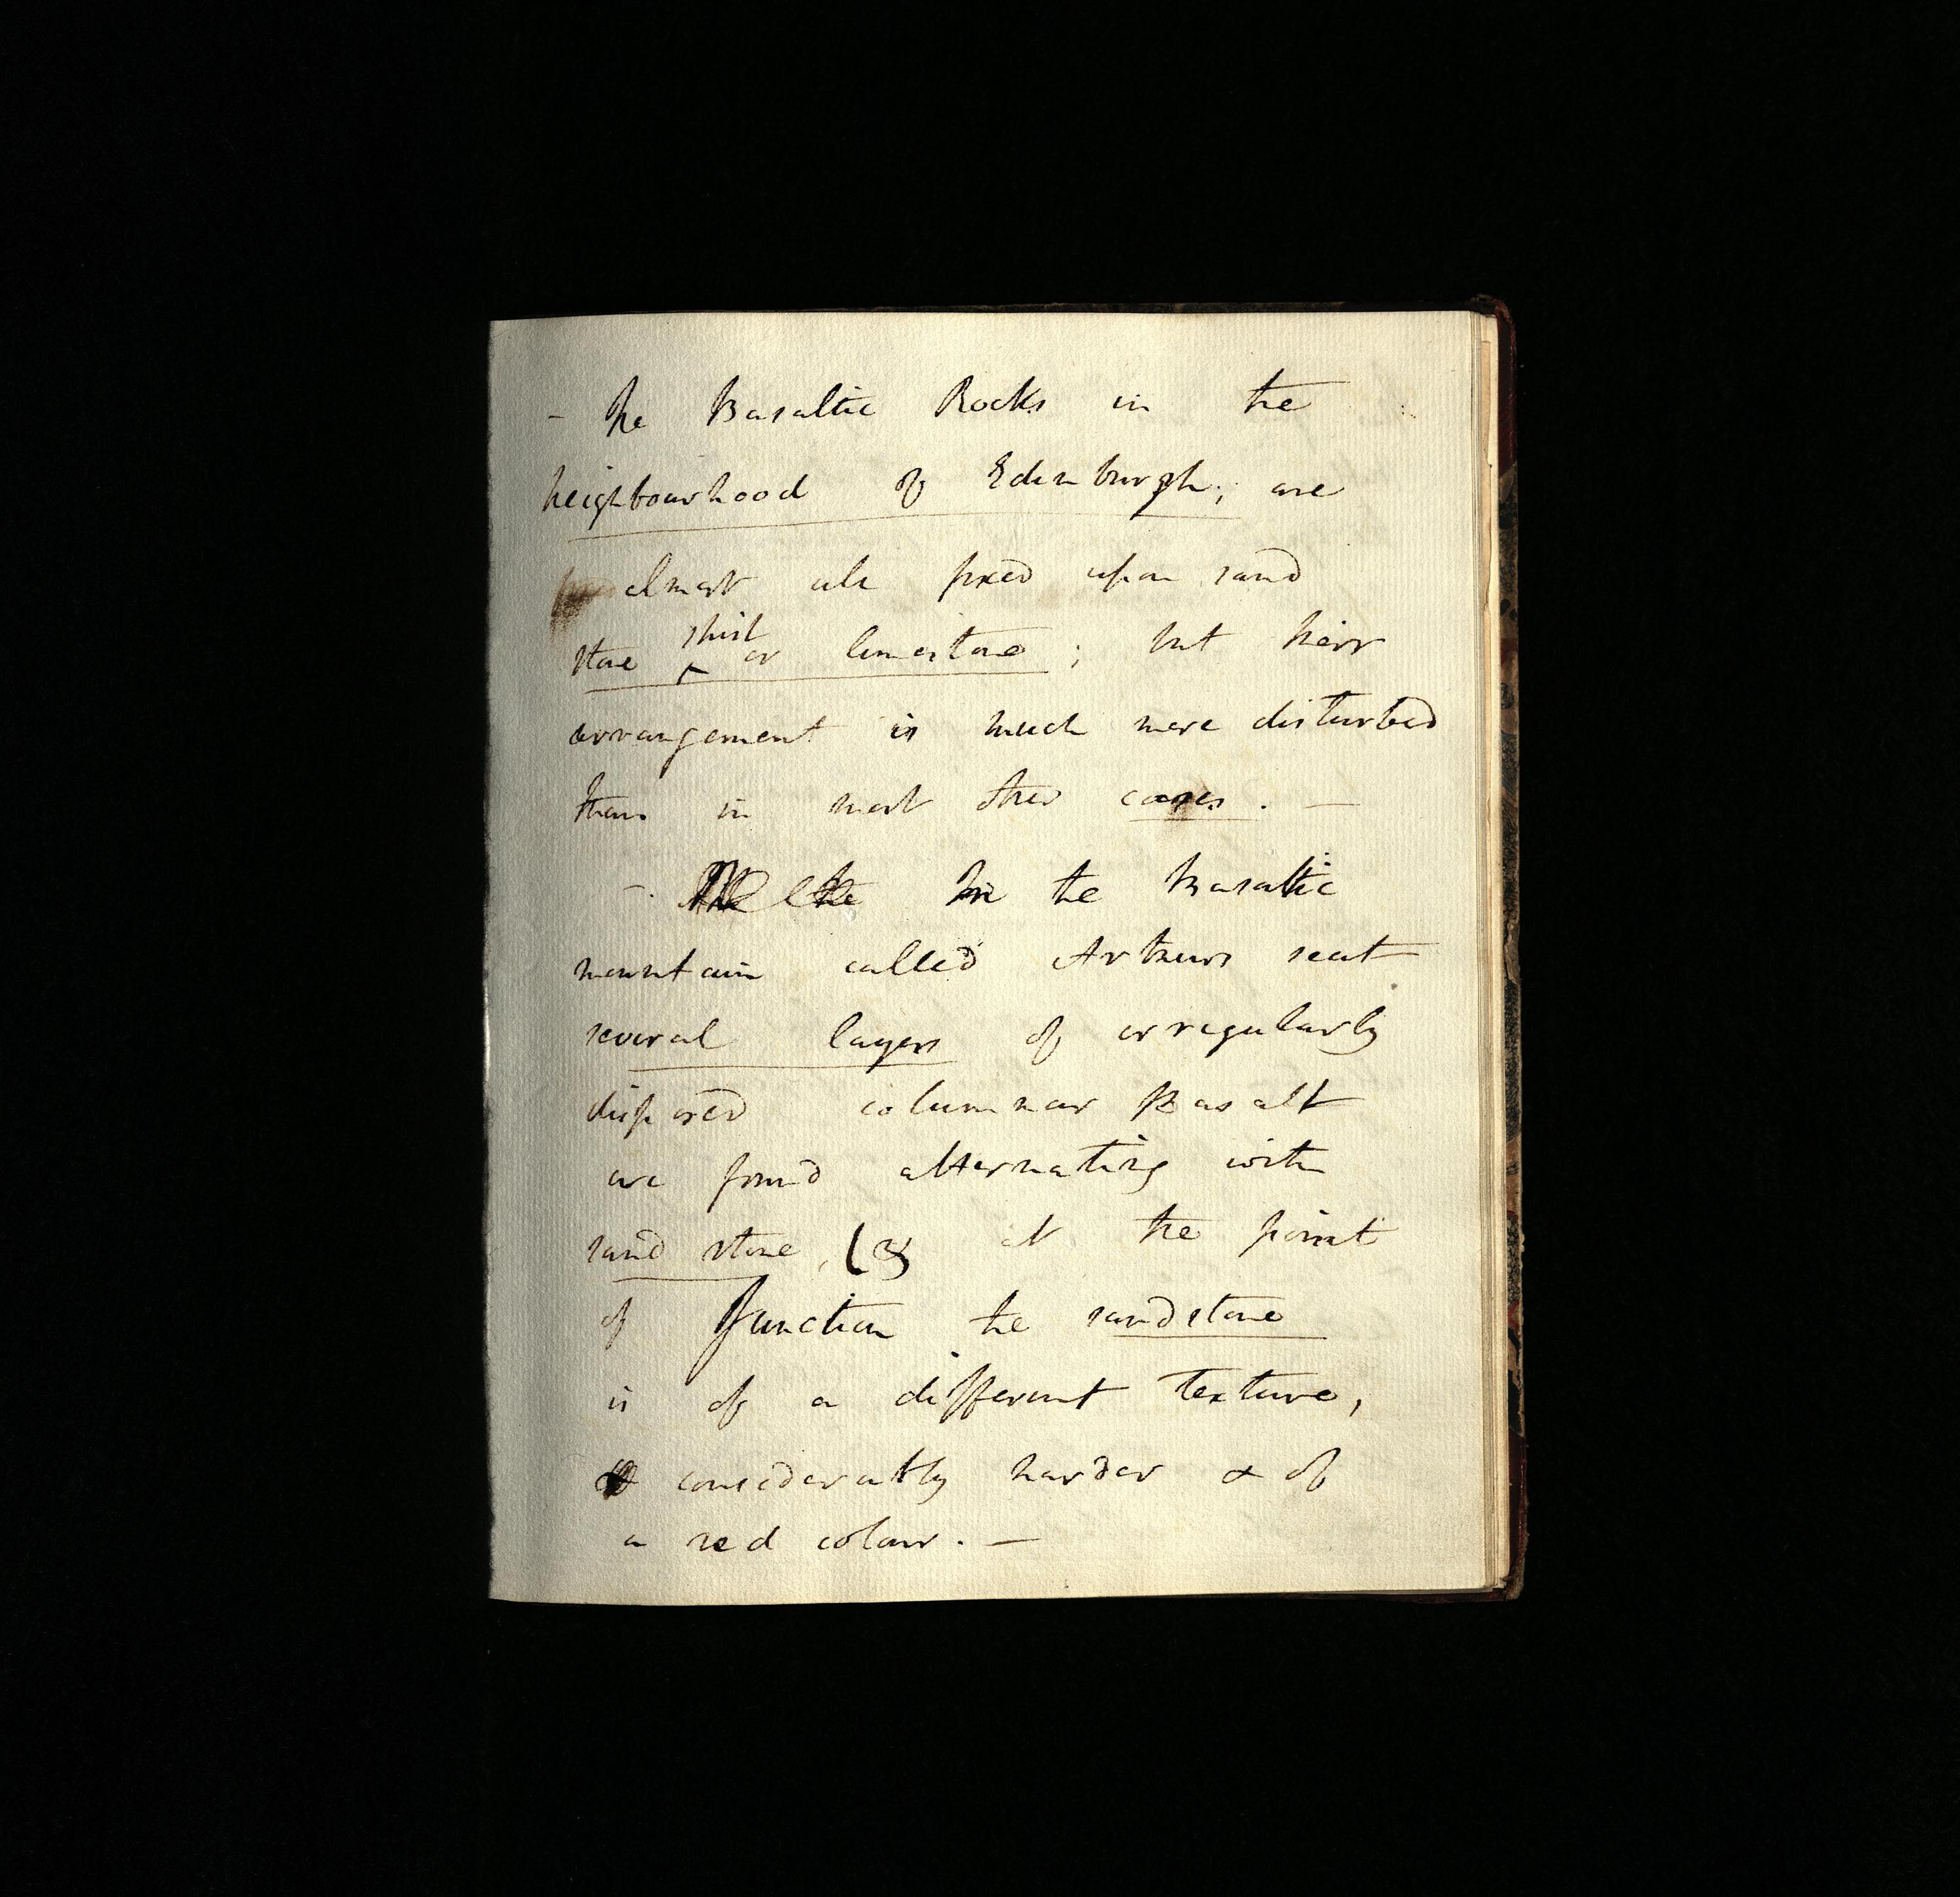 – The Basaltic Rocks in the
neighbourhood of Edinburgh; are
almost all fixed upon sand
stone shist or limestone; but their
arrangement is much more disturbed
than in most other cases. –
– In the Basaltic
mountain called Arthurs seat
several layers of irregularly
disposed columnar Basalt
are found alternating with
sand stone, (& at the point
of Junction the sandstone
is of a different texture,
considerably harder & of
a red colour. –